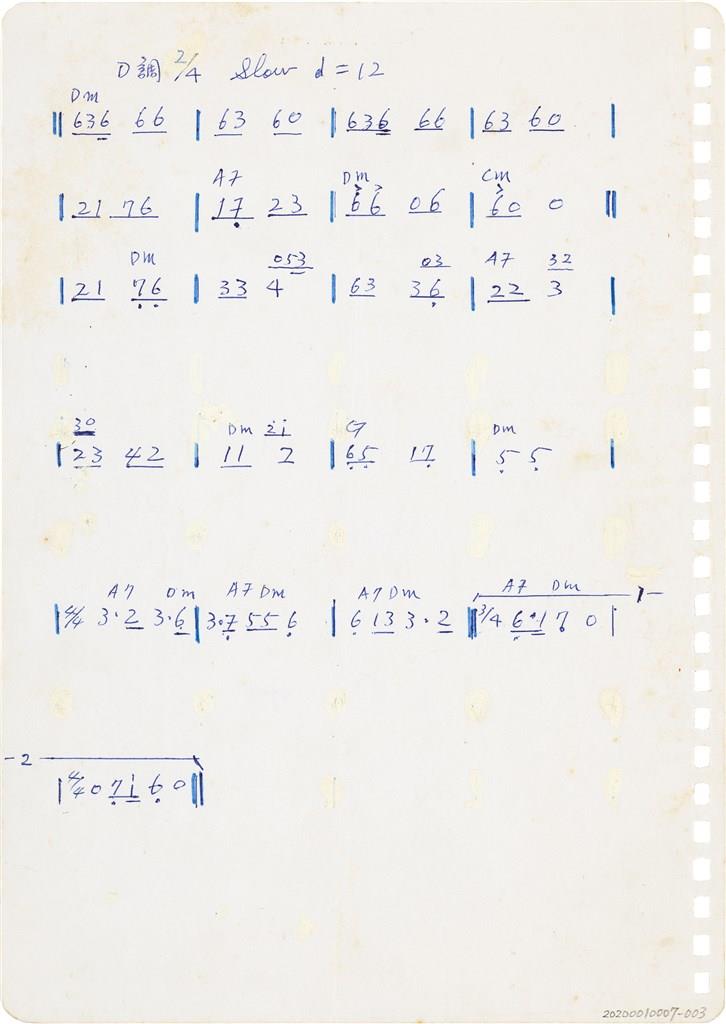 D調 2/4 Slow d = 12
Dm
‖ 636 66 | 63 60 | 636 66 | 63 60 |
A7 Dm Cm
| 21 76 | 17 23 | 66 06 | 60 0 ‖
Dm 053 03 A7 32
| 21 76 | 33 4 | 63 36 | 22 3 |
30 Dm 21 G Dm
| 23 42 | 11 2 | 65 17 | 5 5 |
A7 Dm A7 Dm A7 Dm A7 Dm 1
| 4/4 3·2 3·6 | 3·7 55 6 | 6 13 3·2 ‖ 3/4 6·1 7 0 |
2
| 4/4 0 71 6 0 ‖
20200010007-003